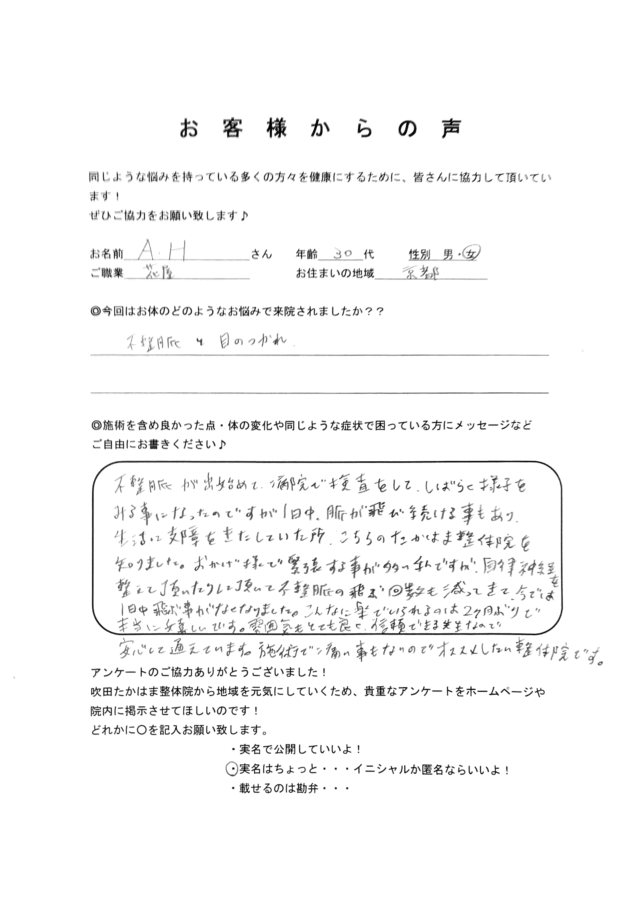 お客様からの声
同じような悩みを持っている多くの方々を健康にするために、皆さんに協力して頂いてい
ます！
ぜひご協力をお願い致します♪
お名前 A.H さん 年齢 30 代 性別 男・女
ご職業 花屋 お住まいの地域 京都
◎今回はお体のどのようなお悩みで来院されましたか？？
不整脈 と 目のつかれ
◎施術を含め良かった点・体の変化や同じような症状で困っている方にメッセージなど
ご自由にお書きください♪
不整脈が出始めて、病院で検査をして、しばらく様子を
みる事になったのですが1日中、脈が飛び続ける事もあり、
生活に支障をきたしていた所、こちらのたかはま整体院を
知りました。おかげ様で緊張する事が多い私ですが、自律神経を
整えて頂いたりして頂いて不整脈の飛ぶ回数も減ってきて、今では
1日中飛ぶ事がなくなりました。こんなに楽でいられるのは2ヶ月ぶりで
本当に嬉しいです。雰囲気もとても良く、信頼できる先生なので
安心して通えています。施術で痛い事もないのでオススメしたい整体院です。
アンケートのご協力ありがとうございました！
吹田たかはま整体院から地域を元気にしていくため、貴重なアンケートをホームページや
院内に掲示させてほしいのです！
どれかに〇を記入お願い致します。
・実名で公開していいよ！
・実名はちょっと・・・イニシャルか匿名ならいいよ！
・載せるのは勘弁・・・